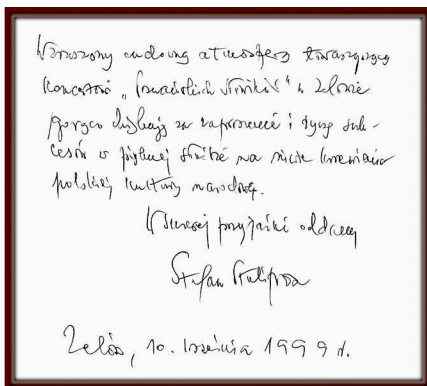 Wzruszony cudowną atmosferą towarzyszącą
Koncertowi „Poznańskich Słowików" w Zelowie
gorąco dziękuję za zaproszenie i życzę suk-
cesów w pięknej służbie na niwie krzewienia
polskiej kultury narodowej.
W szczerej przyjaźni oddany
Stefan Stuligrosz
Zelów, 10. września 1999 r.